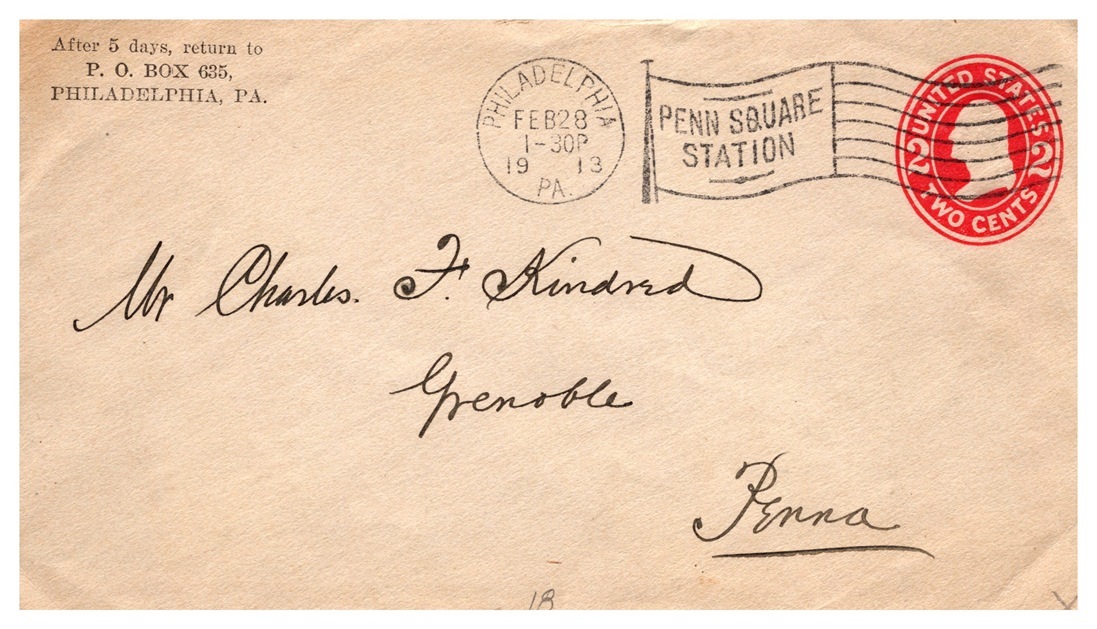 After 5 days, return to
P. O. BOX 635,
PHILADELPHIA, PA.
PHILADELPHIA
FEB28
1-30P
19 13
PA.
PENN SQUARE
STATION
UNITED STATES
2 2
TWO CENTS
Mr Charles. F. Kindred
Grenoble
Penna
18